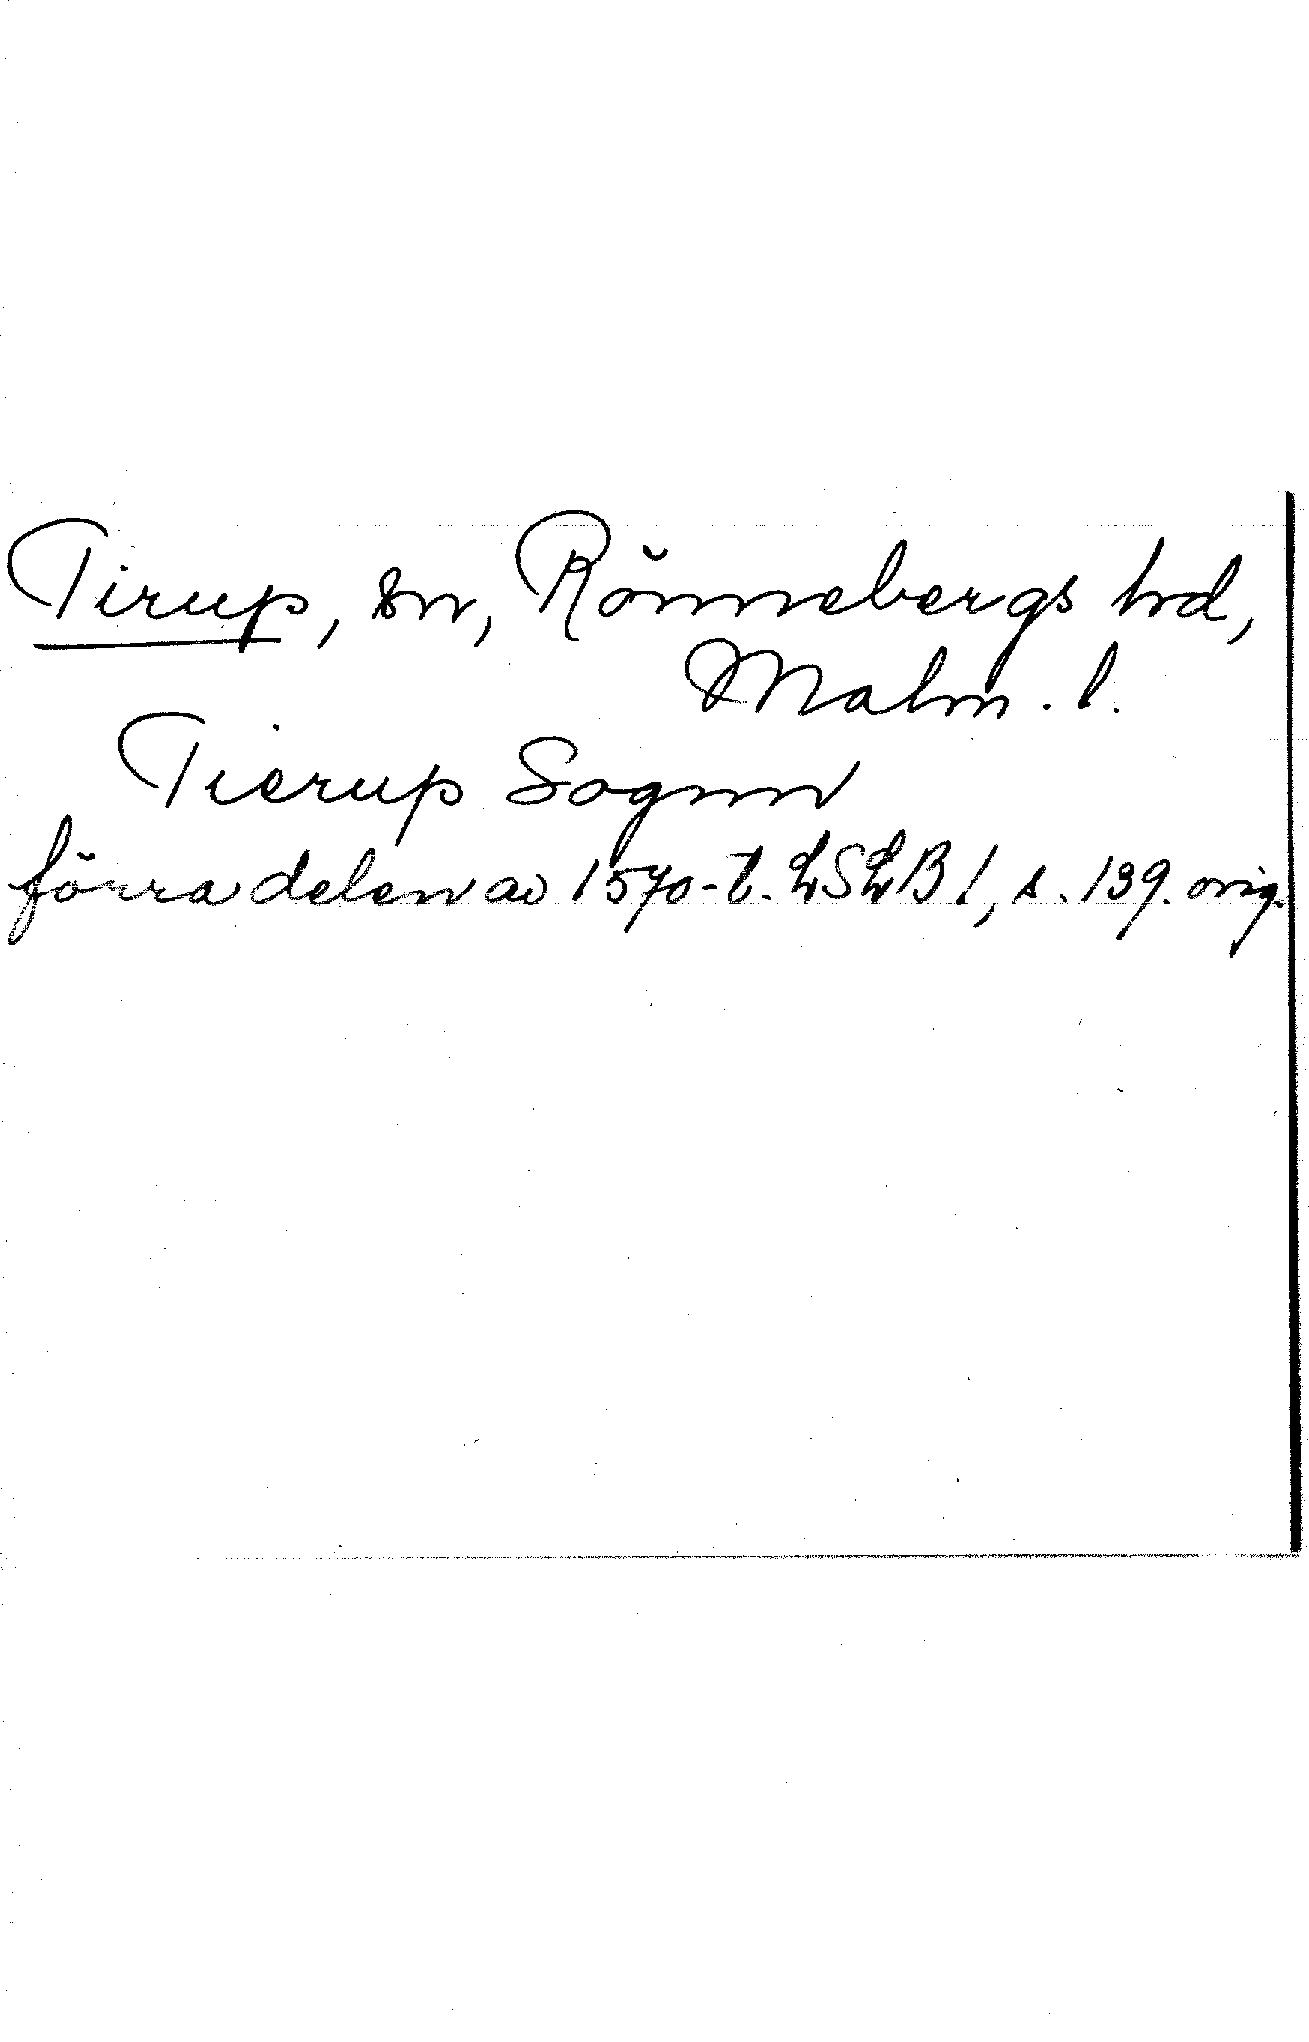 Tirup, sn, Rönnebergs hd,
Malm. l.
Tierup Sognn
förra delen av 1570-t. LSLB 1, s. 139. orig.